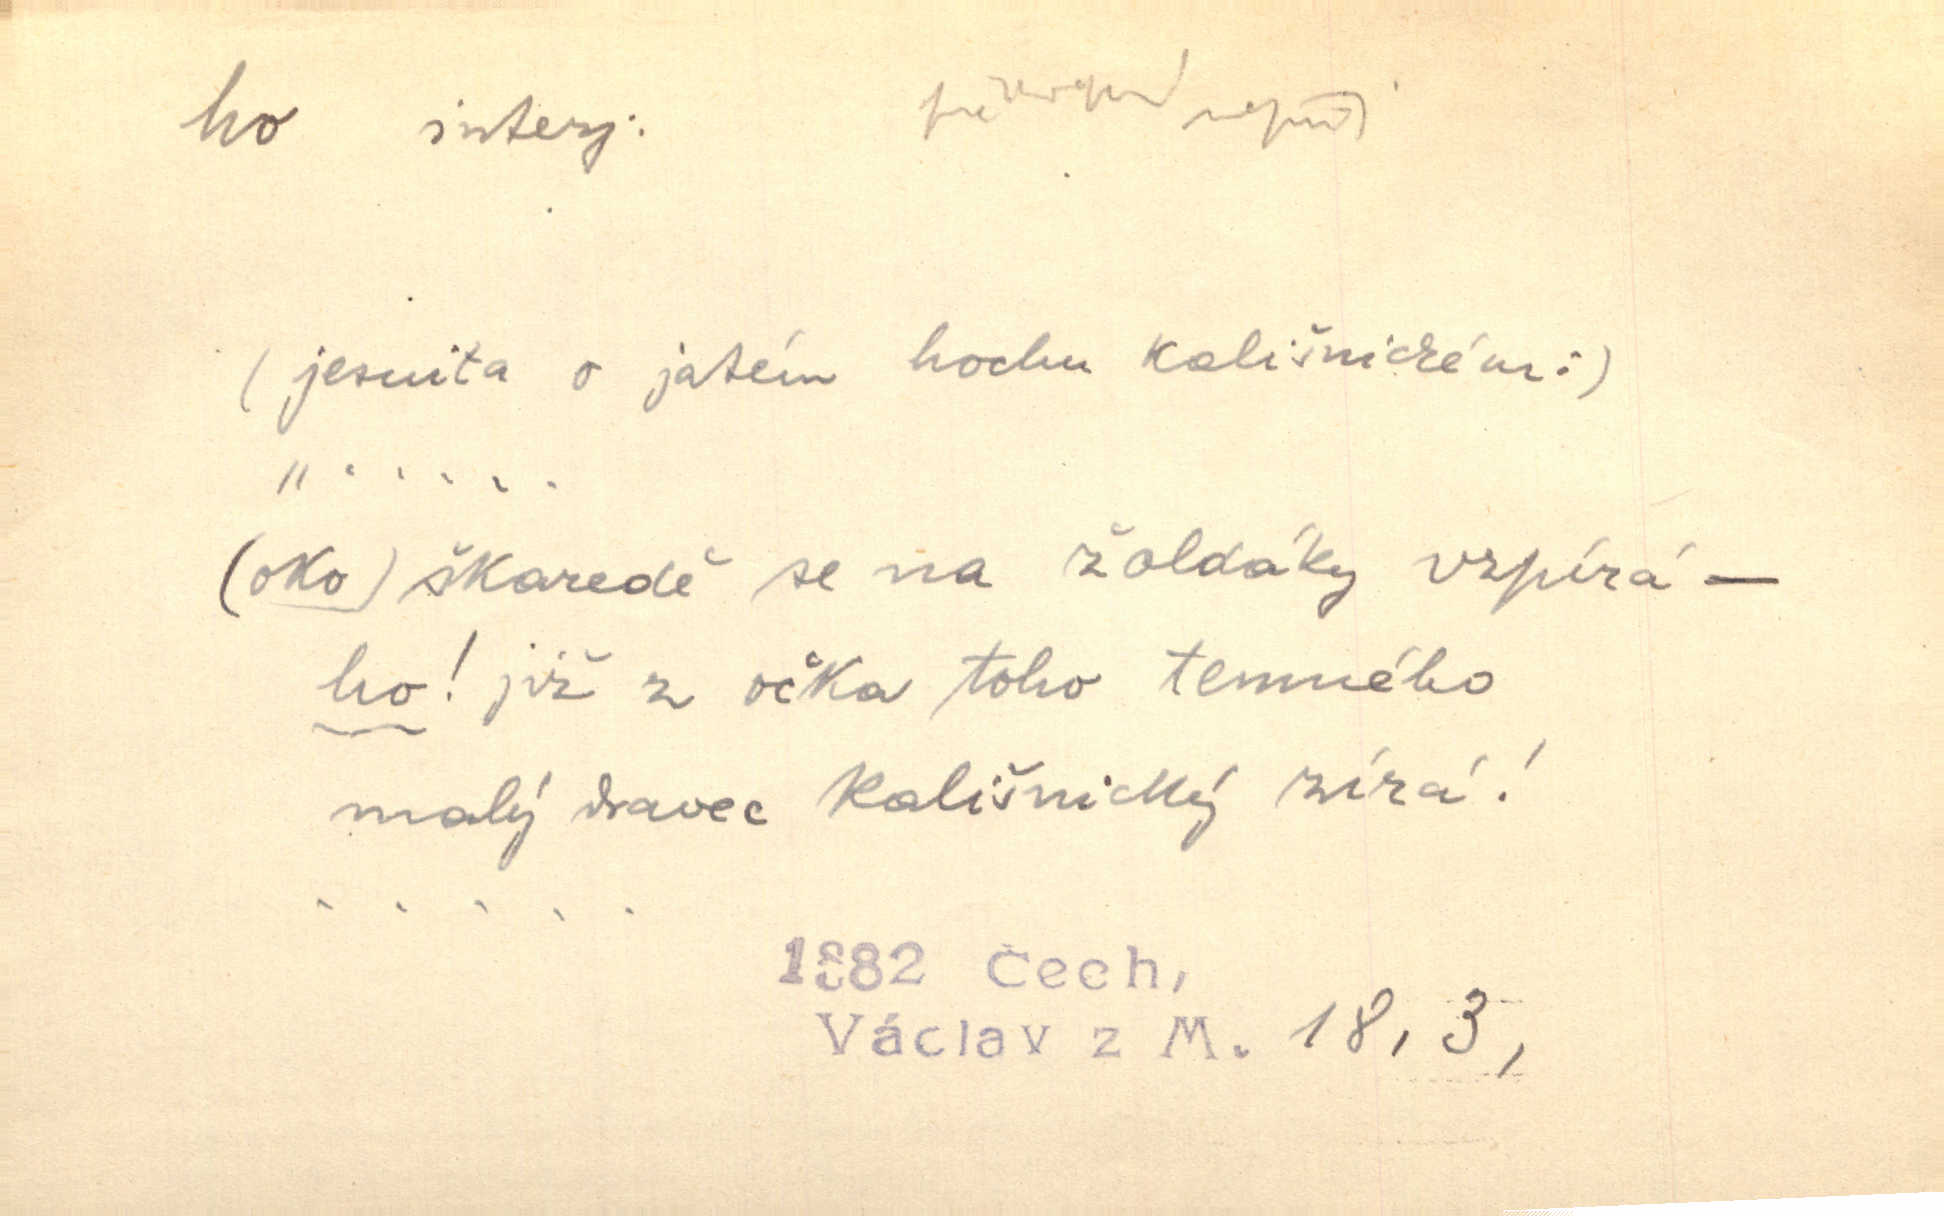 ho interj.
(jesuita o jatém hochu kališnickém:)
" . . . . .
(oko) škaredě se na žoldáky vzpírá —
ho! již z očka toho temného
malý dravec kališnický zírá!
. . . . .
1882 Čech,
Václav z M. 18, 3,